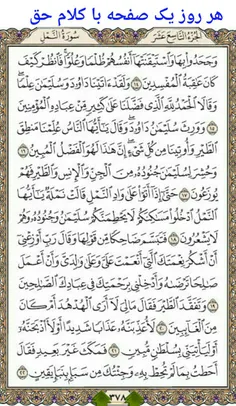 هر روز یک صفحه با کلام حق
الجزء التاسع عشر سورة النمل
وَجَحَدُوا۟ بِهَا وَٱسْتَيْقَنَتْهَآ أَنفُسُهُمْ ظُلْمًا وَعُلُوًّا ۚ فَٱنظُرْ كَيْفَ
كَانَ عَـٰقِبَةُ ٱلْمُفْسِدِينَ ١٤ وَلَقَدْ ءَاتَيْنَا دَاوُۥدَ وَسُلَيْمَـٰنَ عِلْمًا ۖ
وَقَالَا ٱلْحَمْدُ لِلَّهِ ٱلَّذِى فَضَّلَنَا عَلَىٰ كَثِيرٍ مِّنْ عِبَادِهِ ٱلْمُؤْمِنِينَ
١٥ وَوَرِثَ سُلَيْمَـٰنُ دَاوُۥدَ ۖ وَقَالَ يَـٰٓأَيُّهَا ٱلنَّاسُ عُلِّمْنَا مَنطِقَ
ٱلطَّيْرِ وَأُوتِينَا مِن كُلِّ شَىْءٍ ۖ إِنَّ هَـٰذَا لَهُوَ ٱلْفَضْلُ ٱلْمُبِينُ ١٦
وَحُشِرَ لِسُلَيْمَـٰنَ جُنُودُهُۥ مِنَ ٱلْجِنِّ وَٱلْإِنسِ وَٱلطَّيْرِ فَهُمْ
يُوزَعُونَ ١٧ حَتَّىٰٓ إِذَآ أَتَوْا۟ عَلَىٰ وَادِ ٱلنَّمْلِ قَالَتْ نَمْلَةٌ يَـٰٓأَيُّهَا
ٱلنَّمْلُ ٱدْخُلُوا۟ مَسَـٰكِنَكُمْ لَا يَحْطِمَنَّكُمْ سُلَيْمَـٰنُ وَجُنُودُهُۥ وَهُمْ
لَا يَشْعُرُونَ ١٨ فَتَبَسَّمَ ضَاحِكًا مِّن قَوْلِهَا وَقَالَ رَبِّ أَوْزِعْنِىٓ
أَنْ أَشْكُرَ نِعْمَتَكَ ٱلَّتِىٓ أَنْعَمْتَ عَلَىَّ وَعَلَىٰ وَٰلِدَىَّ وَأَنْ أَعْمَلَ
صَـٰلِحًا تَرْضَىٰهُ وَأَدْخِلْنِى بِرَحْمَتِكَ فِى عِبَادِكَ ٱلصَّـٰلِحِينَ
١٩ وَتَفَقَّدَ ٱلطَّيْرَ فَقَالَ مَا لِىَ لَآ أَرَى ٱلْهُدْهُدَ أَمْ كَانَ
مِنَ ٱلْغَآئِبِينَ ٢٠ لَأُعَذِّبَنَّهُۥ عَذَابًا شَدِيدًا أَوْ لَأَا۟ذْبَحَنَّهُۥٓ
أَوْ لَيَأْتِيَنِّى بِسُلْطَـٰنٍ مُّبِينٍ ٢١ فَمَكَثَ غَيْرَ بَعِيدٍ فَقَالَ
أَحَطتُ بِمَا لَمْ تُحِطْ بِهِۦ وَجِئْتُكَ مِن سَبَإٍۭ بِنَبَإٍ يَقِينٍ ٢٢
٣٧٨